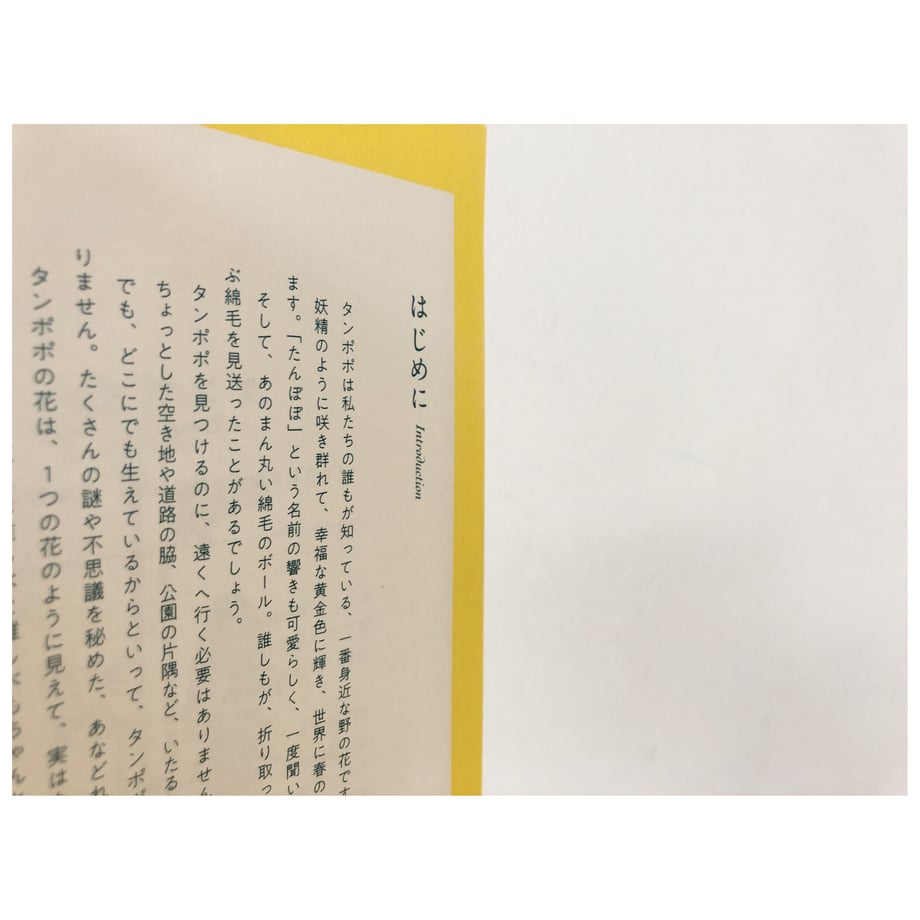 はじめに Introduction
タンポポは私たちの誰もが知っている、一番身近な野の花です
妖精のように咲き群れて、幸福な黄金色に輝き、世界に春の
ます。「たんぽぽ」という名前の響きも可愛らしく、一度聞い
そして、あのまん丸い綿毛のボール。誰しもが、折り取っ
ぶ綿毛を見送ったことがあるでしょう。
タンポポを見つけるのに、遠くへ行く必要はありません
ちょっとした空き地や道路の脇、公園の片隅など、いたる
でも、どこにでも生えているからといって、タンポポ
りません。たくさんの謎や不思議を秘めた、あなどれ
タンポポの花は、1つの花のように見えて、実は